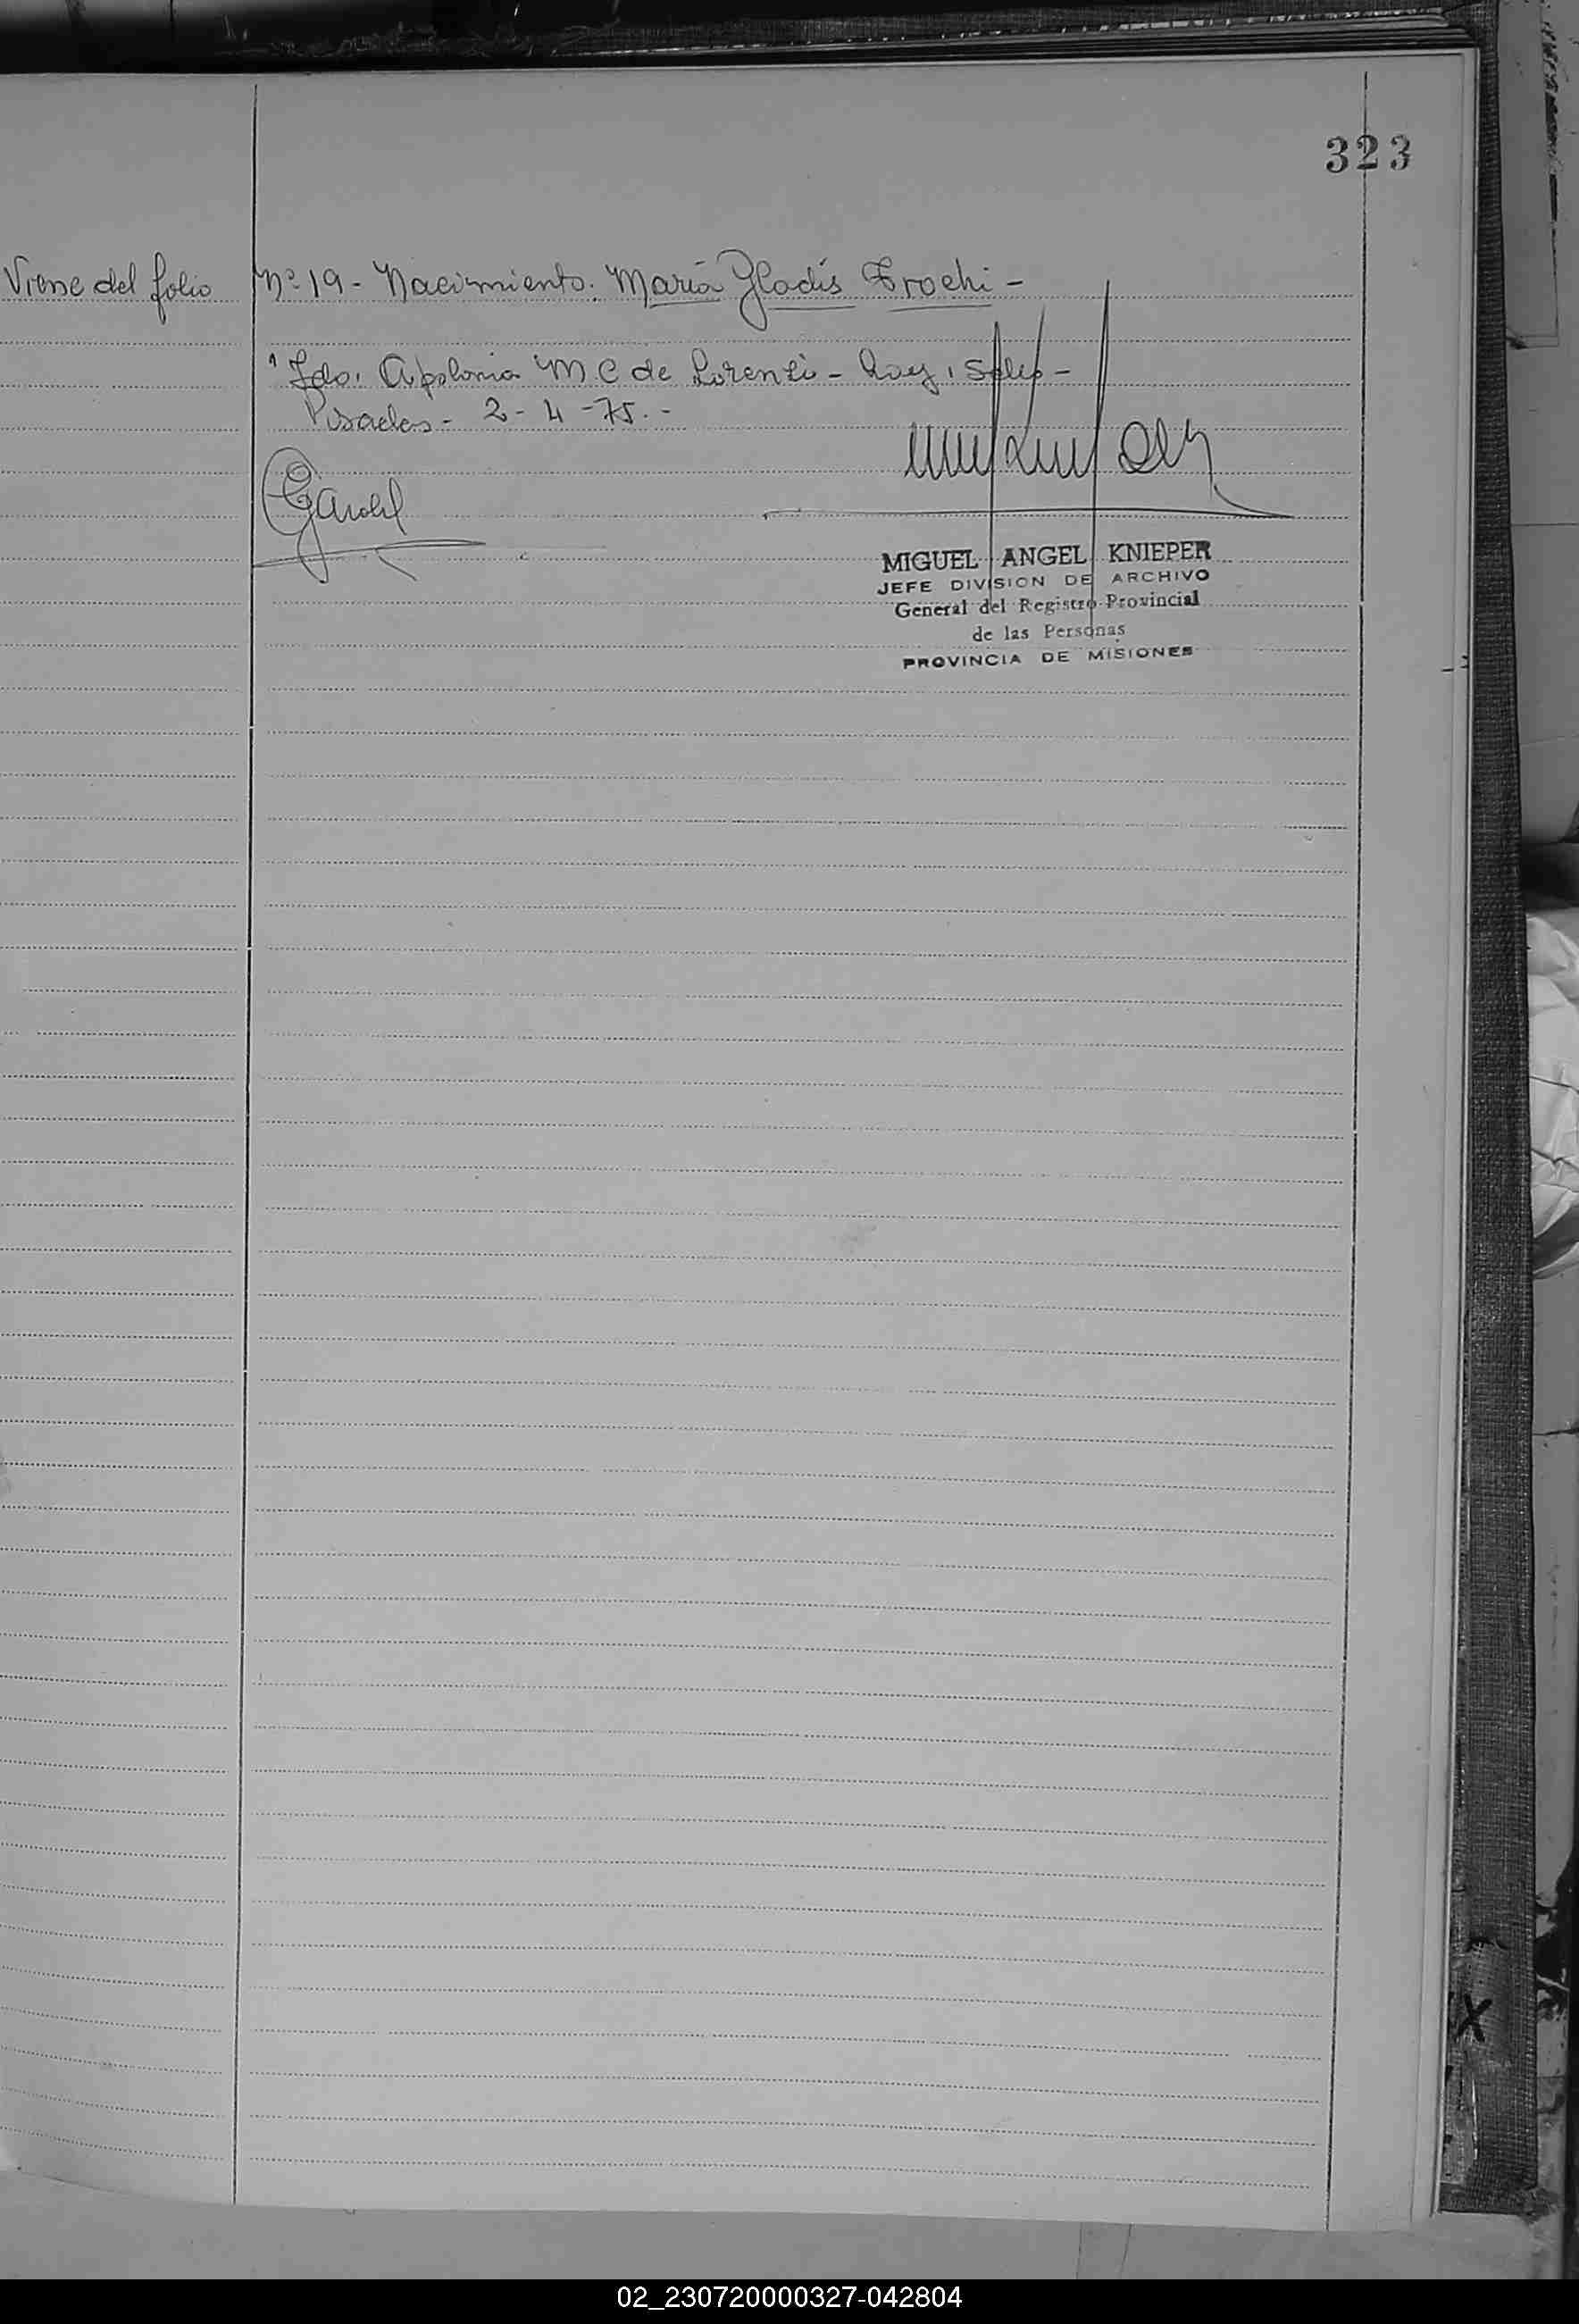 323
Viene del folio Nº 19 - Nacimiento. María Gladis Trochi -
Fdo. Apolonia M C de Lorenzi -
Posadas - 2 - 4 - 75. -
MIGUEL ANGEL KNIEPER
JEFE DIVISION DE ARCHIVO
General del Registro Provincial
de las Personas
PROVINCIA DE MISIONES
X
02_230720000327-042804